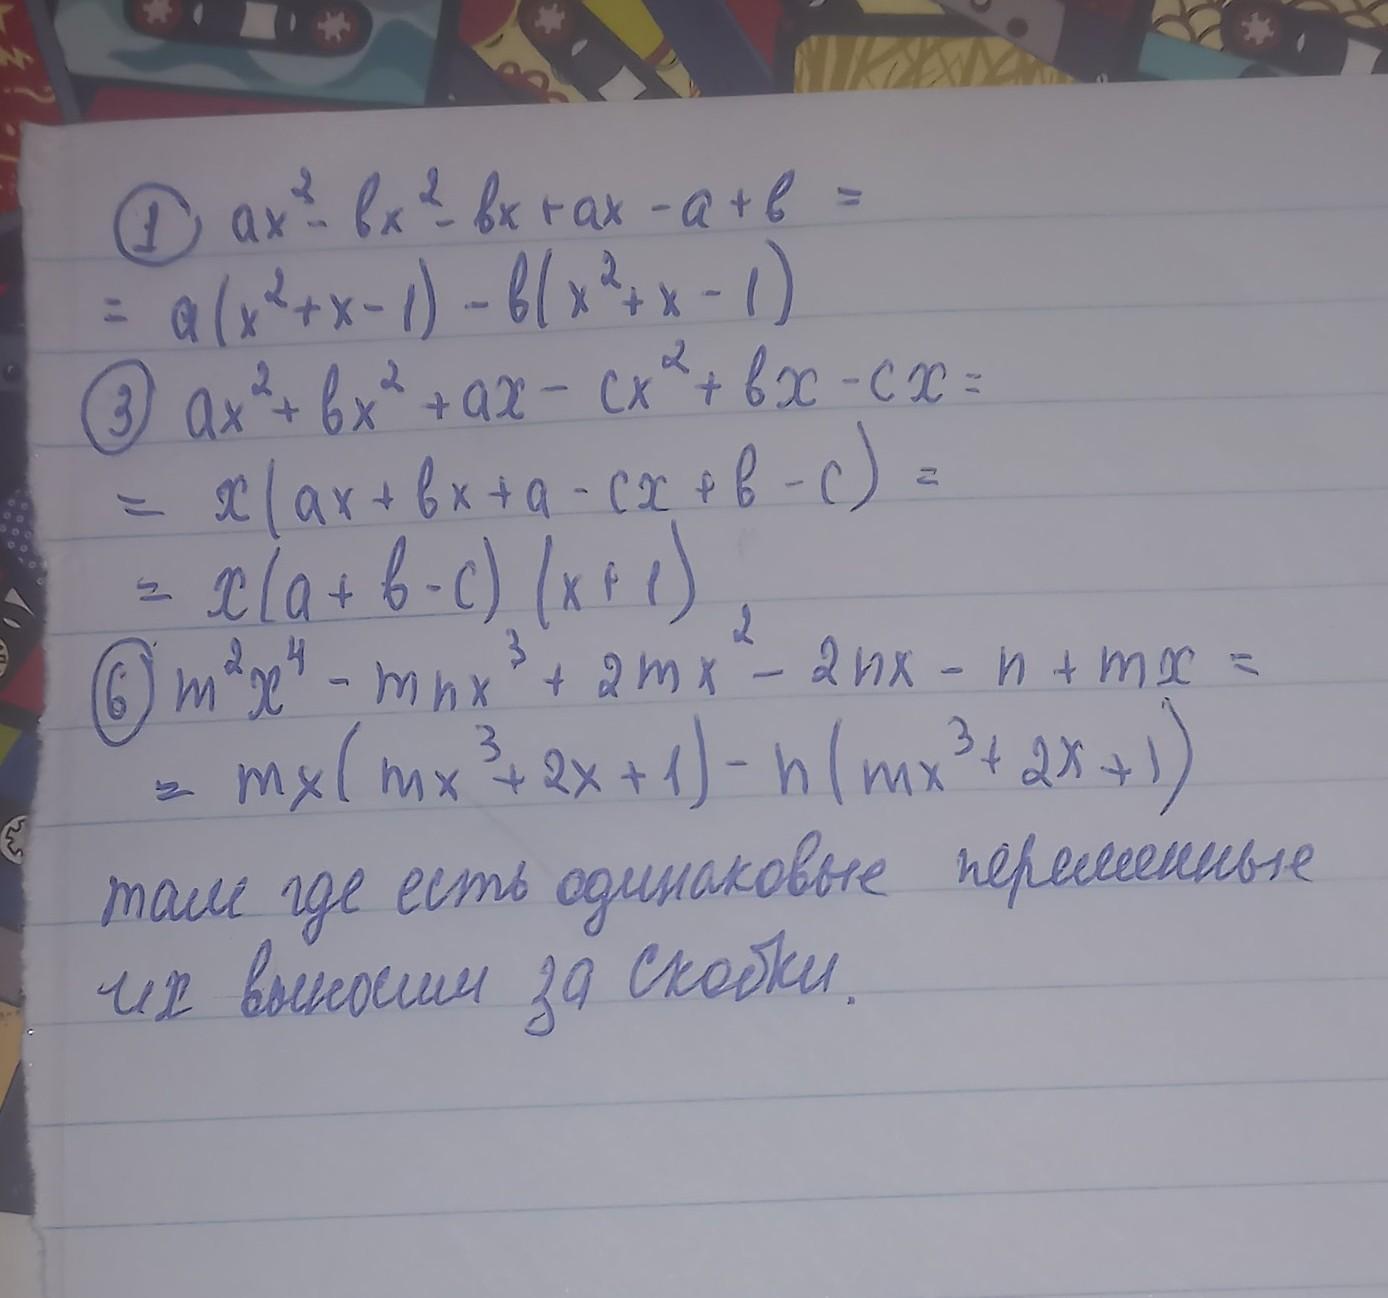 ① ax² - вx² - вx + ax - a + в =
= a(x² + x - 1) - в(x² + x - 1)
③ ax² + вx² + ax - cx² + вx - cx =
= x(ax + вx + a - cx + в - c) =
= x(a + в - c) (x + 1)
⑥ m²x⁴ - mnx³ + 2mx² - 2nx - n + mx =
= mx(mx³ + 2x + 1) - n(mx³ + 2x + 1)
там где есть одинаковые переменные
их выносим за скобки.